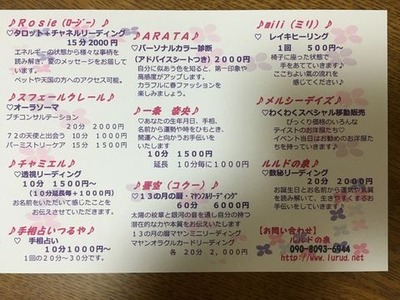 ♪Rosie(ロージー)♪
♡タロット+チャネルリーディング
15分2000円
エネルギーの状態から様々な事柄を
読み解き、愛のメッセージをお届して
います。
ペットや天国の方へのアクセス可能。
♪スフェールウレール♪
♡オーラソーマ
プチコンサルテーション
20分 2000円
72の天使と出会う 10分 1000円
パーミストリーケア 15分 1500円
♪チャミエル♪
♡透視リーディング
10分 1500円〜
(10分延長毎+1000円)
お名前をいただいて感じたことを
お伝えさせていただきます。
♪手相占いつるや♪
♡手相占い
10分1000円〜
1回の20分〜30分です。
♪ARATA♪
♡パーソナルカラー診断
(アドバイスシートつき)2000円
自分に似あう色を知ると、第一印象や
高感度がアップします。
カラフルに春ファッションを
楽しみましょう。
♪一条 ♪
♡あなたの生年月日、手相、
名前から運勢や時をひもとき、
開運へと向かうお手伝いを
いたします。
10分 1500円
延長 10分毎に1000円
♪曇空(コウー)♪
♡13の月の暦・マヤンフルリーディング
60分 6000円
太陽の紋章と銀河の音を通し自分の持つ
潜在的な力や本質をお伝えいたします
13の月の暦マヤンミニリーディング
マヤンオラクルカードリーディング
各20分 2,000円
♪mili(ミリ)♪
♡レイキヒーリング
1回 500円〜
椅子に座った状態で
手をあてていきます♪
ここちよい気の流れを
感じてください♪
♪メルシーデイズ♪
♡わくわくスペシャル移動販売
びっくり価格のいろんな
テイストのお洋服たち♡
イベント当日はお勧めのお洋服
たちを持っていきます♪
♪ルルドの泉♪
♡数秘リーディング
20分 2000円
お誕生日とお名前から運気や気質
を読み解いて、生きやすくするお
手伝いをしていきます♪
【お問い合わせ】
ルルドの泉
090-8093-6944
http://www.lurud.net